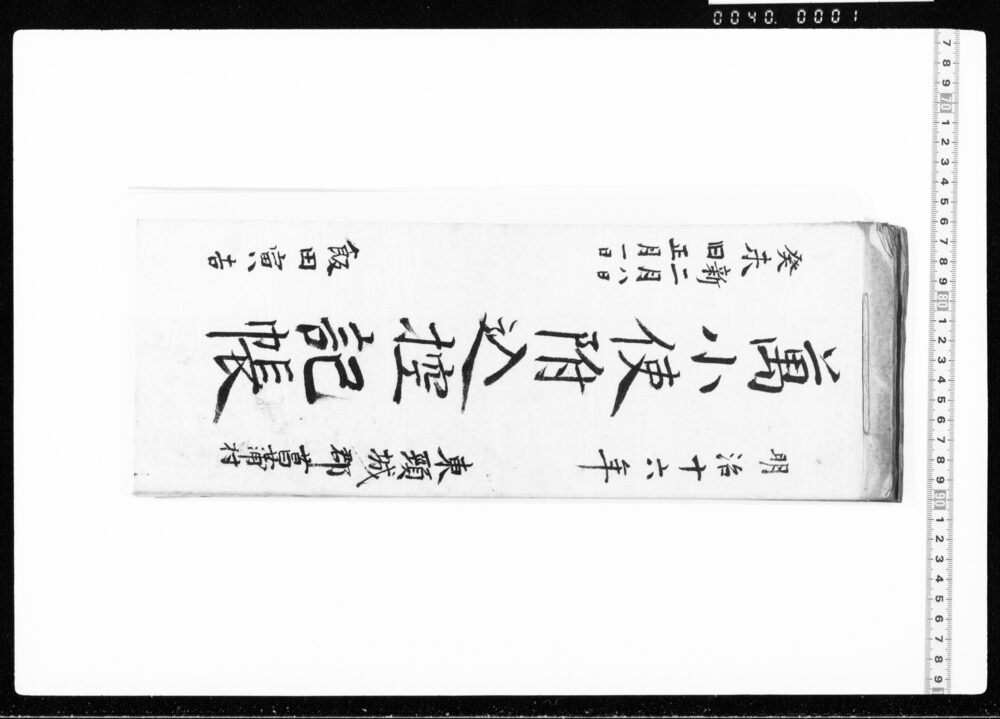 0040. 0001
明治十六年
東頸城郡菖蒲村
萬小使附込控記帳
癸未
新二月八日
旧正月一日
飯田寅吉
7 8 9 70 1 2 3 4 5 6 7 8 9 80 1 2 3 4 5 6 7 8 9 90 1 2 3 4 5 6 7 8 9